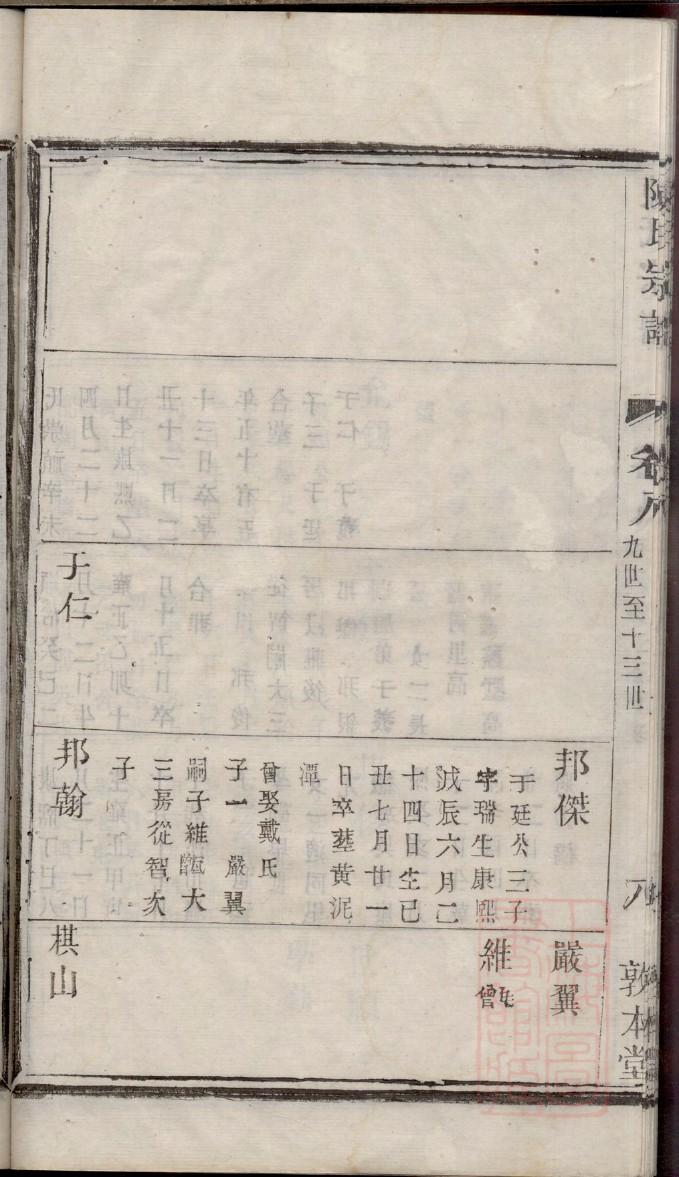 陳氏宗譜
卷八
九世至十三世
八
敦本堂
于仁
邦傑
于廷公三子
字瑞生康熙
戊辰六月二
十四日生己
丑七月廿一
日卒塟黄泥
潭
曾娶戴氏
子一 嚴翼
嗣子維甑大
三房從智次
子
邦翰
嚴翼
維甑
棋山